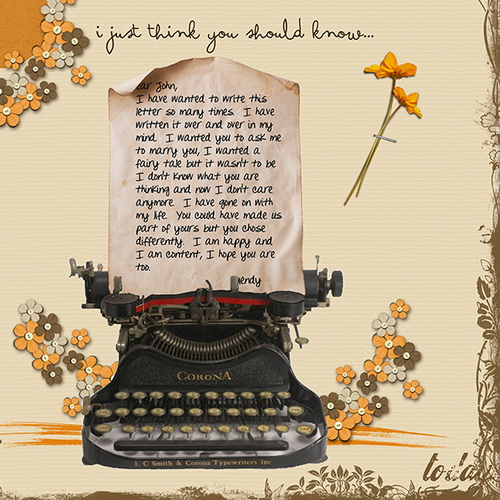 i just think you should know...
Dear John,
I have wanted to write this
letter so many times. I have
written it over and over in my
mind. I wanted you to ask me
to marry you, I wanted a
fairy tale but it wasn't to be
I don't know what you are
thinking and now I don't care
anymore. I have gone on with
my life. You could have made us
part of yours but you chose
differently. I am happy and
I am content, I hope you are
too.
endy
CORONA
L C Smith & Corona Typewriters Inc